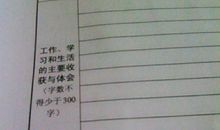 工作、学
习和生活
的主要收
获与体会
（字数不
得少于300
字）